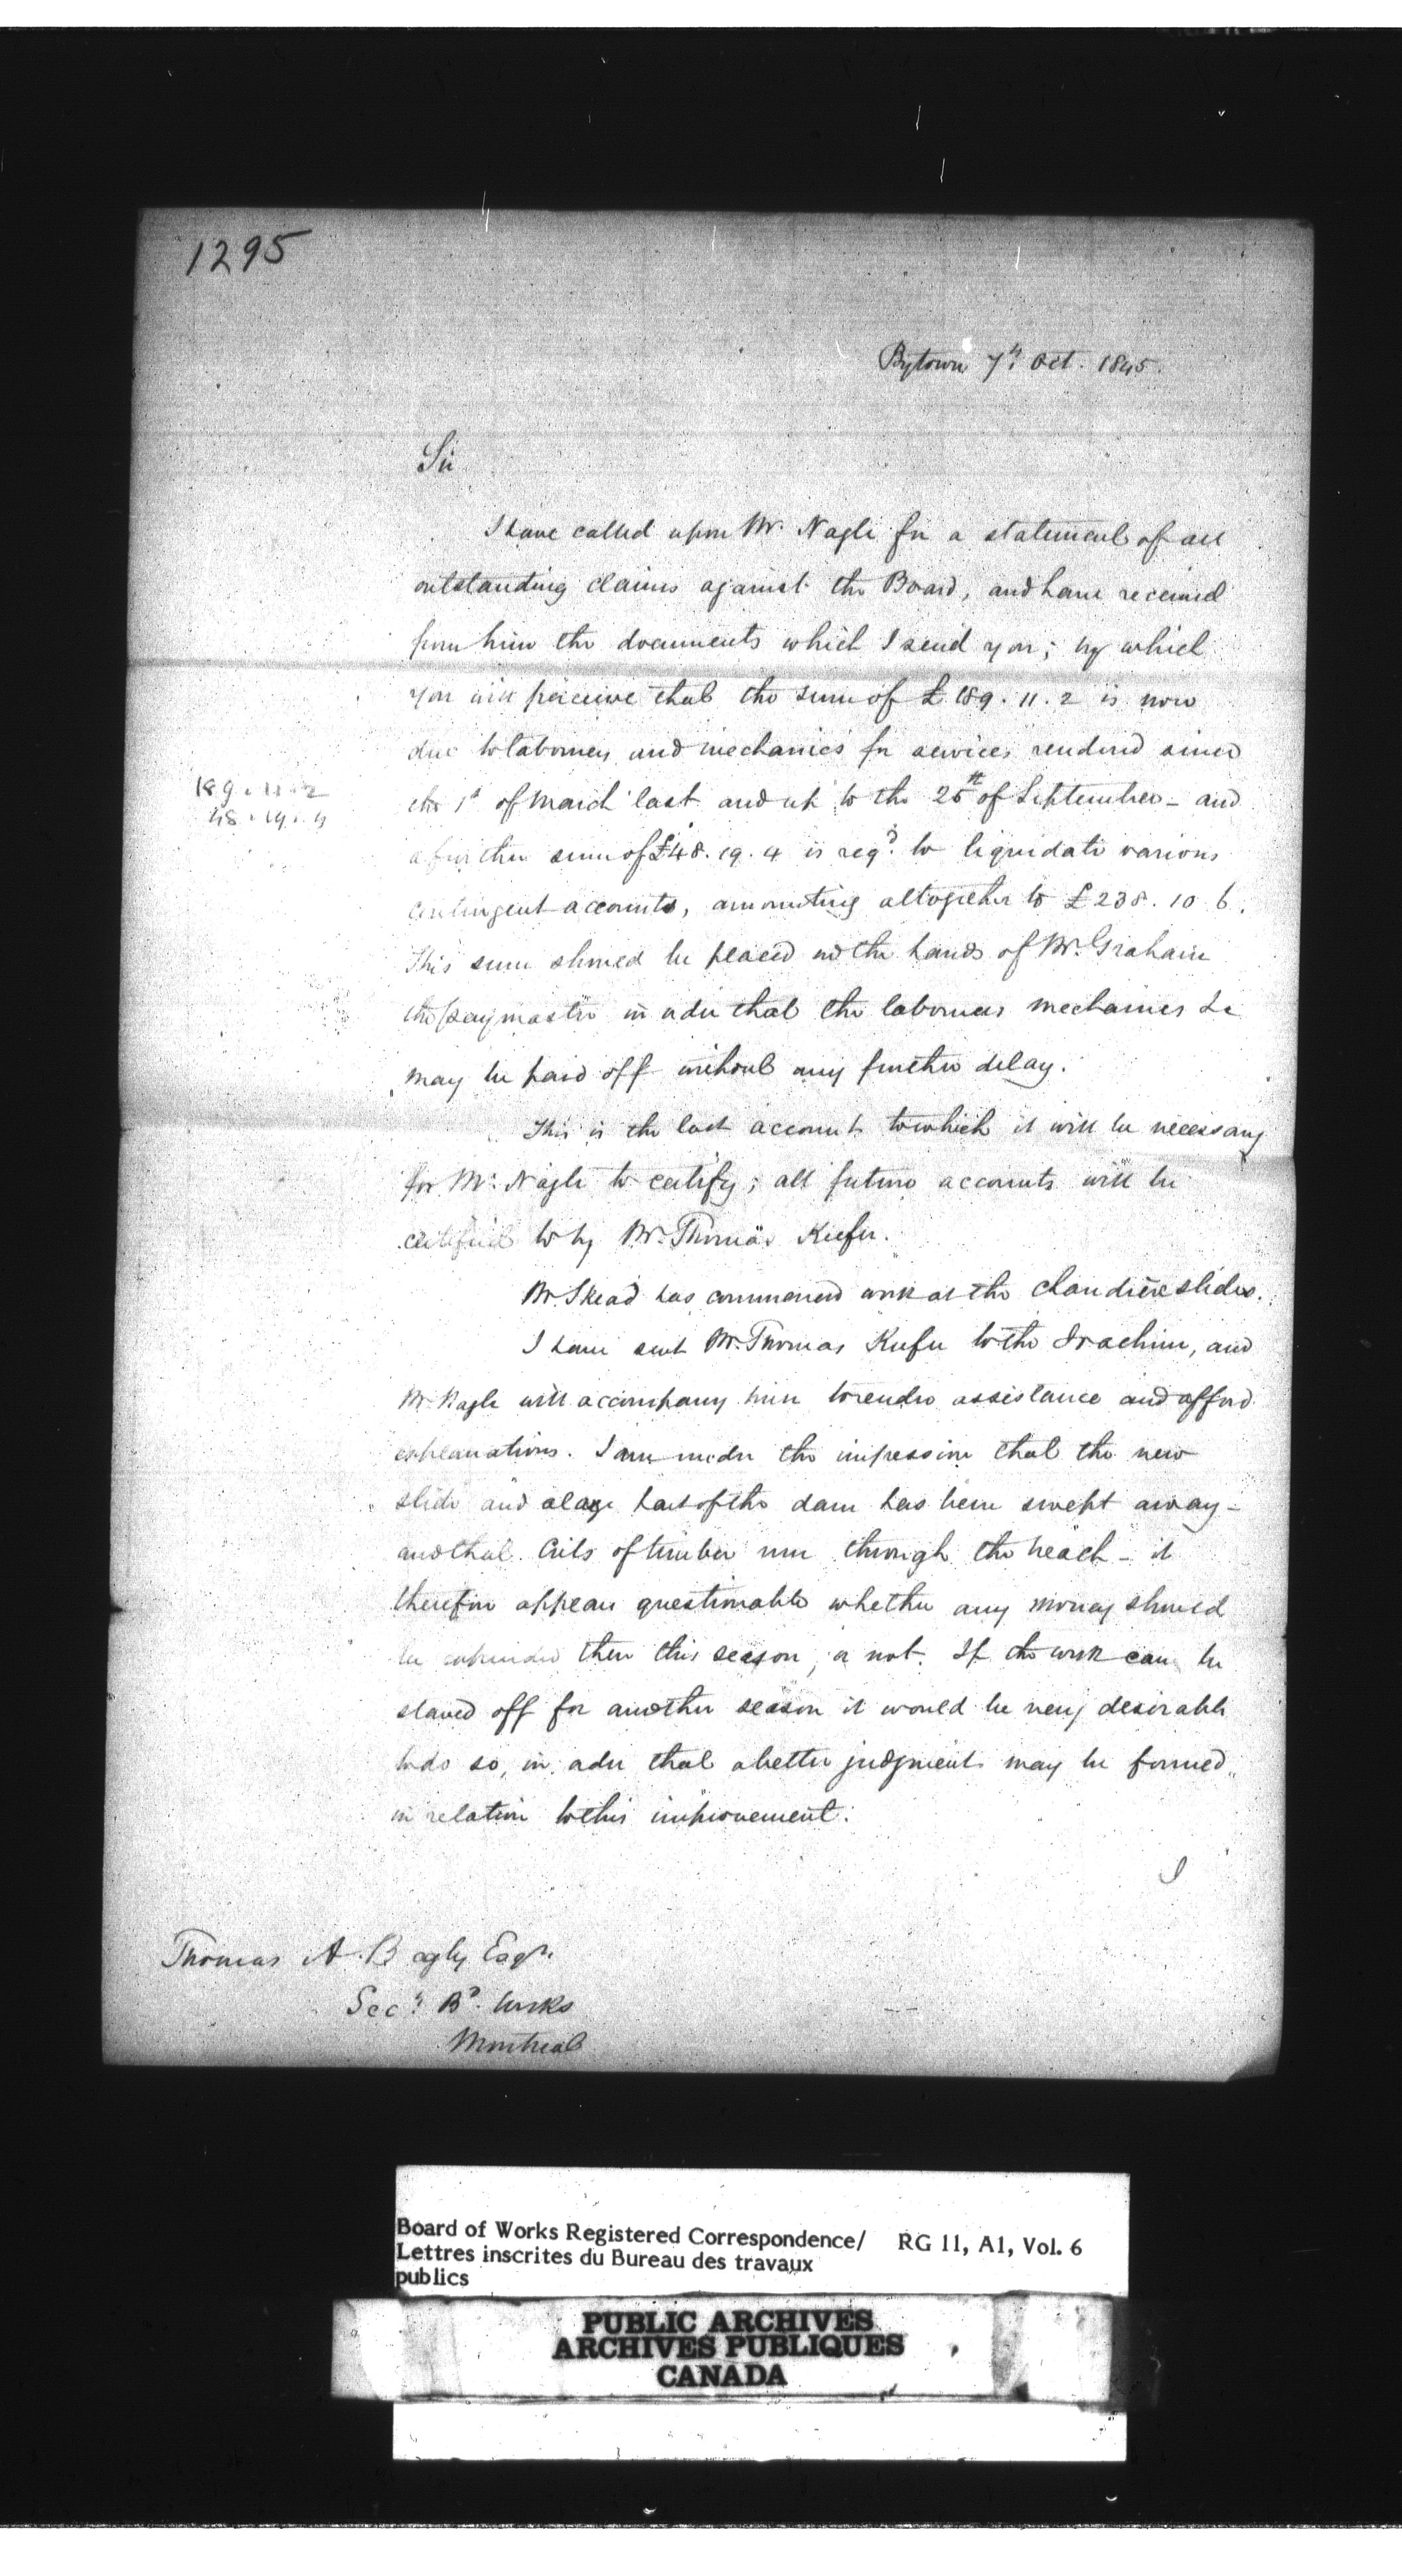 1295
Bytown 7th Oct. 1845.
Sir
I have called upon Mr. Nagle for a statement of all
outstanding claims against the Board, and have received
from him the documents which I send you; by which
you will perceive that the sum of £189.11.2 is now
due to labourers and mechanics for services rendered since
189.11.2
the 1st of March last and up to the 25th of September - and
48.19.4
a further sum of £48.19.4 is reqd. to liquidate various
contingent accounts, amounting altogether to £238.10.6.
This sum should be placed in the hands of Mr. Graham
the paymaster in order that the labourers mechanics &c
may be paid off without any further delay.
This is the last account to which it will be necessary
for Mr. Nagle to certify; all future accounts will be
certified to by Mr. Thomas Keefer.
Mr. Skead has commenced work at the Chaudière slides.
I have sent Mr. Thomas Keefer to the Joachim, and
Mr. Nagle will accompany him to render assistance and afford
explanations. I am under the impression that the new
slide and a large part of the dam has been swept away -
and that Cribs of timber run through the breach - it
therefore appears questionable whether any money should
be expended there this season, or not. If the work can be
staved off for another season it would be very desirable
to do so, in order that a better judgment may be formed
in relation to this improvement.
I
Thomas A. Begly Esqr.
Secy. Bd. Works
Montreal
Board of Works Registered Correspondence/ RG 11, A1, Vol. 6
Lettres inscrites du Bureau des travaux
publics
PUBLIC ARCHIVES
ARCHIVES PUBLIQUES
CANADA